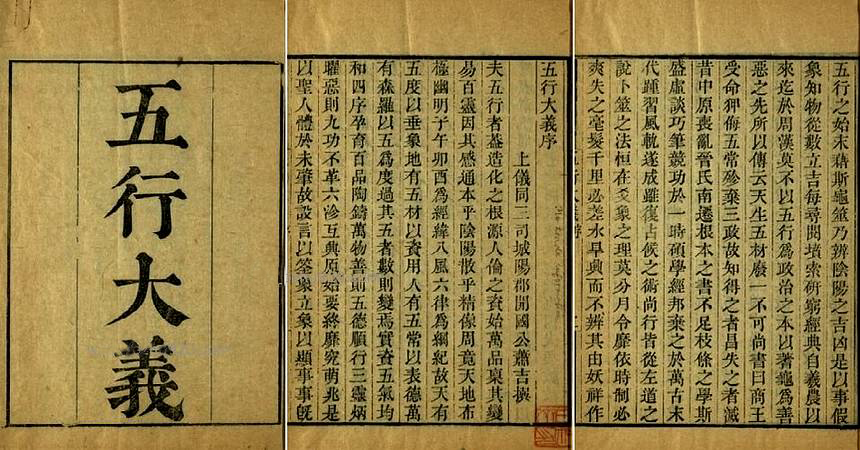 五行大義
五行大義序
上儀同三司城陽郡開國公蕭吉撰
夫五行者蓋造化之根源人倫之資始萬品稟其變
易百靈因其感通本乎陰陽散乎精像周竟天地布
極幽明子午卯酉爲經緯八風六律爲綱紀故天有
五度以垂象地有五材以資用人有五常以表德萬
有森羅以五爲度過其五者數則變焉實資五氣均
和四序孕育百品陶鑄萬物善則五德順行三靈炳
曜惡則九功不革六沴互興原始要終靡究萌兆是
以聖人體於未肇故設言以筌象立象以顯事事旣
五行之始末藉斯龜筮乃辨陰陽之吉凶是以事假
象知物從數立吉每尋閱墳索研窮經典自羲農以
來迄於周漢莫不以五行爲政治之本以蓍龜爲善
惡之先所以傳云天生五材廢一不可尚書曰商王
受命狎侮五常殄棄三政故知得之者昌失之者滅
昔中原喪亂晉氏南遷根本之書不足枝條之學斯
盛虛談巧筆競功於一時碩學經邦棄之於萬古末
代踵習風軌遂成雖復占候之術尚行皆從左道之
說卜筮之法恒在爻象之理莫分月令靡依時制必
爽失之毫髮千里必差水旱興而不辨其由妖祥作